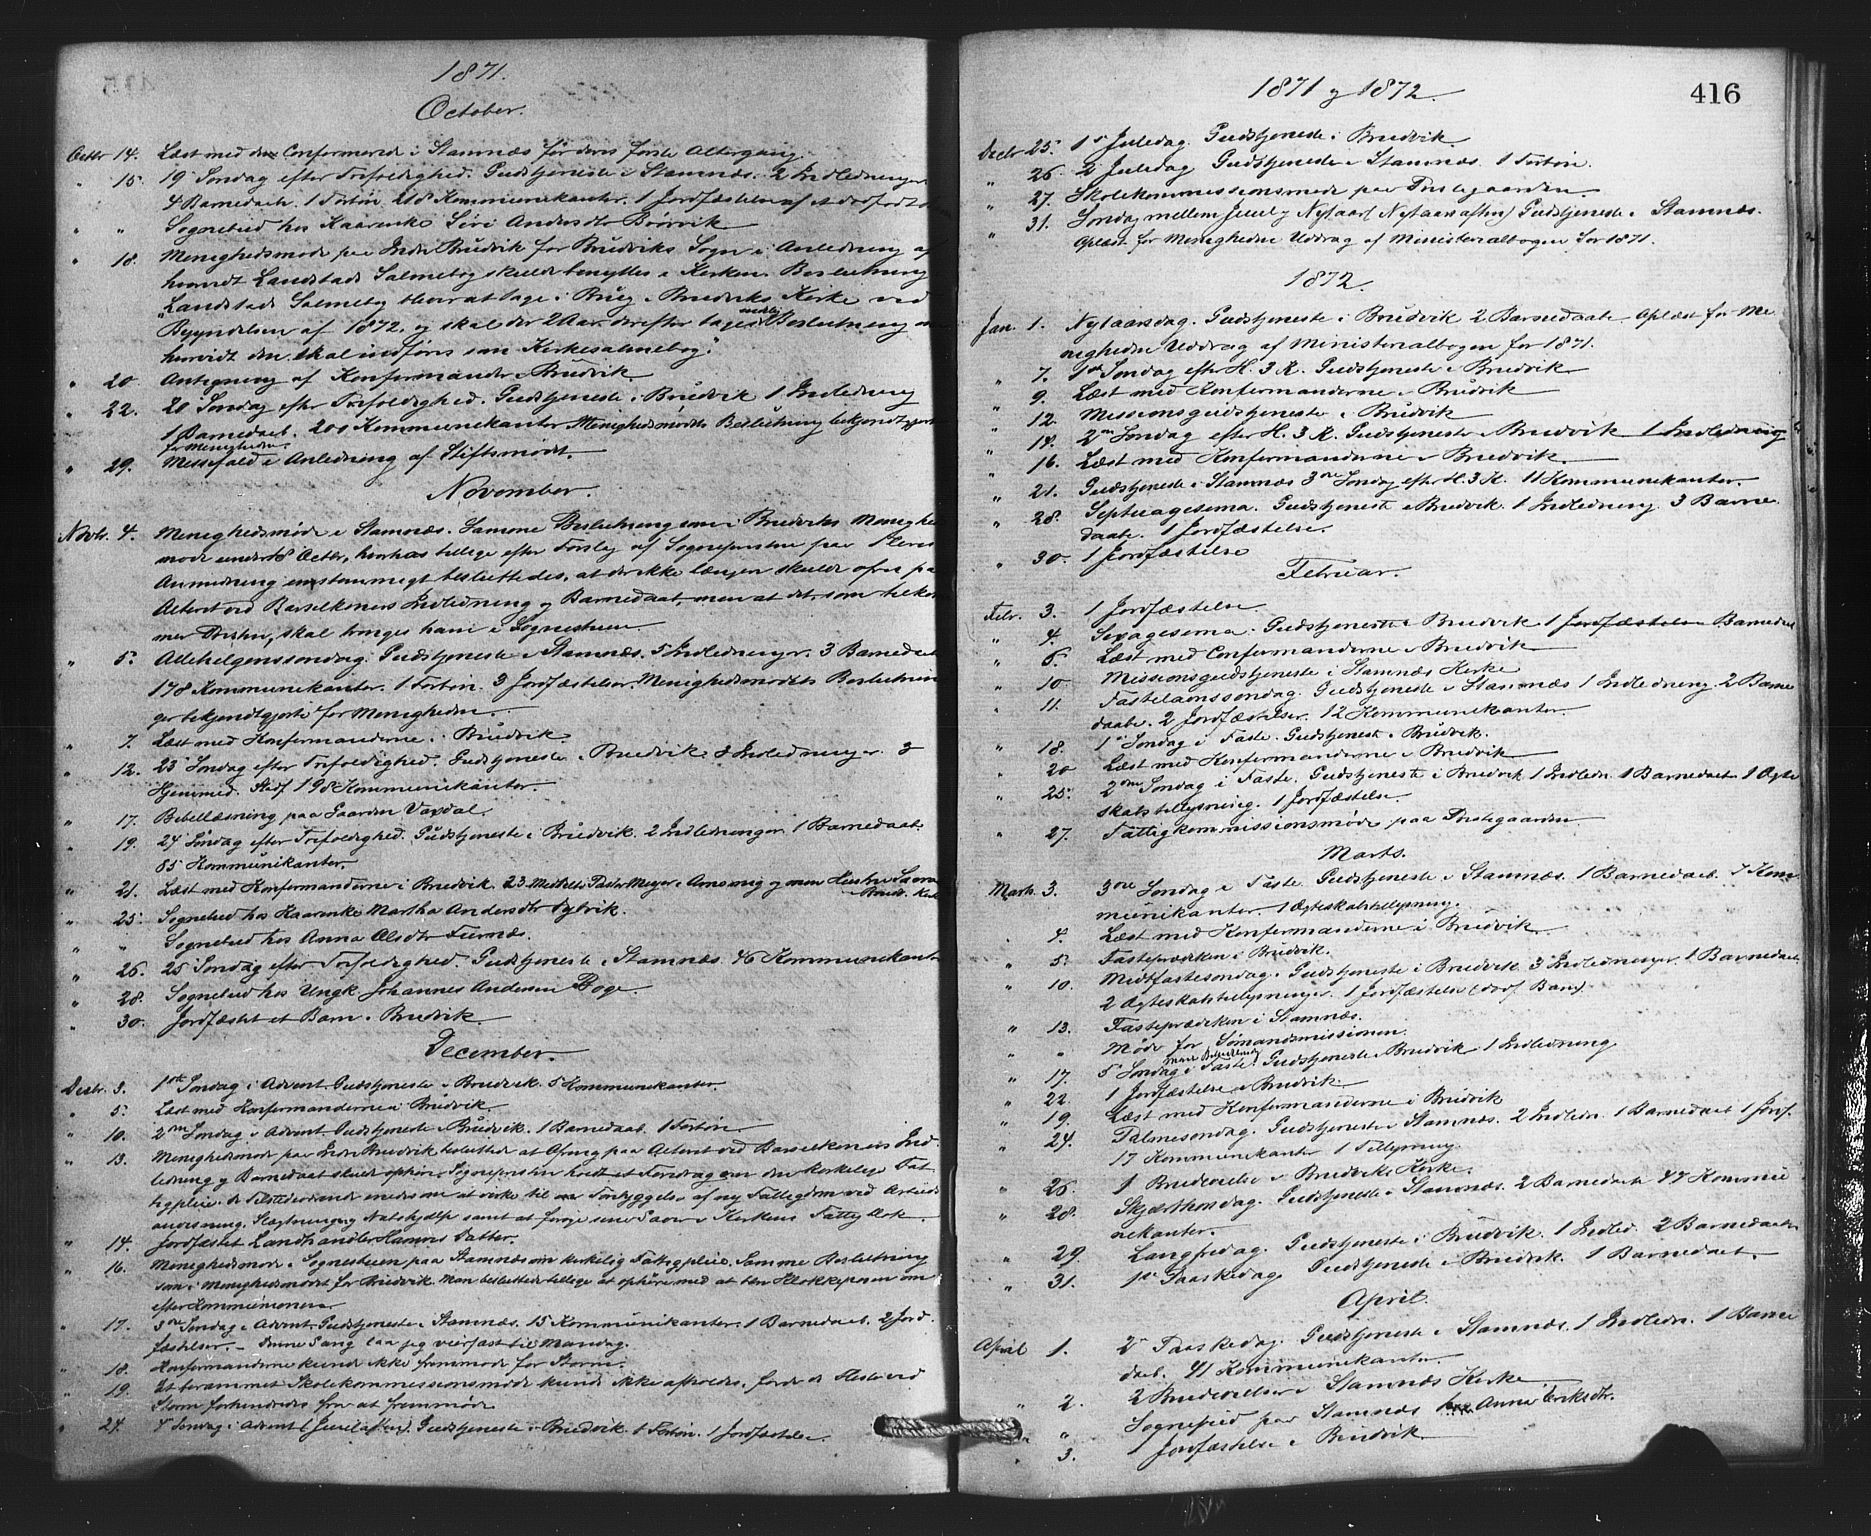 1871.
October.
Octbr 14. Læst med de Confirmerede i Stamnæs før deres første Altergang
" 15. 19 Søndag efter Trefoldighed. Gudstjeneste i Stamnæs. 2 Indledninger
4 Barnedaab. 1 Forlov. 218 Kommunikanter. 1 Jordfæstelse af et dødfødt
" " Sognebud hos Kaarenke Siri Andersdtr Børvik
" 18. Menighedsmøde paa Indre Brudvik for Brudviks Sogn i Anledning af
hvorvidt Landstads Salmebog skulde benyttes i Kirken. Beslutning
"Landstads Salmebog bliver at tage i Brug i Brudviks Kirke ved
Begyndelsen af 1872, og skal der 2 Aar derefter tages endelig Beslutning om
hvorvidt den skal indføres som Kirkesalmebog."
" 20. Antegning af Konfirmander i Brudvik.
" 22. 20 Søndag efter Trefoldighed. Gudstjeneste i Brudvik 1 Indledning
1 Barnedaab. 200 Kommunikanter Menighedsmødets Beslutning bekjendtgjort
for Menigheden
" 29. Messefald i Anledning af Stiftsmødet.
November.
Novbr. 4. Menighedsmøde i Stamnæs. Samme Beslutning som i Brudviks Menigheds
møde under 18 Octbr, hvorhos tillige efter Forslag af Sognepræsten paa Fleres
Anmodning enstemmigt besluttedes, at der ikke længer skulde ofres paa
Alteret ved Barselkoners Indledning og Barnedaab, men at det, som tilkom
mer Præsten, skal bringes ham i Sognestuen.
" 5. Allehelgenssøndag. Gudstjeneste i Stamnæs. 5 Indledninger. 3 Barnedaab
178 Kommunikanter. 1 Forlov. 3 Jordfæstelser. Menighedsmødets Beslutnin
ger bekjendtgjort for Menigheden.
" 7. Læst med Konfirmanderne i Brudvik.
" 12. 23 Søndag efter Trefoldighed. Gudstjeneste i Brudvik 3 Indledninger 3
Hjemmed. Stadf. 198 Kommunikanter.
" 17. Bibellæsning paa Gaarden Vaxdal.
" 19. 24 Søndag efter Trefoldighed. Gudstjeneste i Brudvik. 2 Indledninger 1 Barnedaab.
85 Kommunikanter.
" 21. Læst med Konfirmanderne i Brudvik. 23 Meddelte Pastor Meyer i Arne mig og min Hustru
Brudv. Kirke
" 25. Sognebud hos Kaarenke Martha Andersdtr
" " Sognebud hos Anna Olsdtr Furnæs.
" 26. 25 Søndag efter Trefoldighed. Gudstjeneste i Stamnæs. 46 Kommunikant
" 28. Sognebud hos Ungk. Johannes Andersen Boge.
" 30. Jordfæstet et Barn i Brudvik.
December.
Decbr. 3. 1ste Søndag i Advent Gudstjeneste i Brudvik. 5 Kommunikanter
" 5. Læst med Konfirmanderne i Brudvik.
" 10. 2den Søndag i Advent Gudstjeneste i Brudvik. 1 Barnedaab. 1 Forlov.
" 13. Menighedsmøde paa Indre Brudvik besluttede at Ofring paa Alteret ved Barselkoners Ind
ledning og Barnedaab skulde ophøre. Sognepræsten holdt et Foredrag om den kirkelige Fat
tigpleie. De Tilstedeværende enedes om at virke til Forebyggelse af ny Fattigdom ved Arbeids
anvisning, Slægtninge og Nabohjælp samt at forøge sine Gaver i Kirkens Fattigblok.
" 14. Jordfæstet Landhandler Datter.
" 16. Menighedsmøde i Sognestuen paa Stamnæs om kirkelig Fattigpleie. Samme Beslutning
som i Menighedsmødet for Brudvik. Man besluttede tillige at ophøre med at bære Klokkeposen om
efter Kommunionen.
" 17. 3die Søndag i Advent. Gudstjeneste i Stamnæs. 15 Kommunikanter. 1 Barnedaab. 2 Jord
fæstelser. – Denne Gang laa jeg veirfast til Mandag.
" 18. Konfirmanderne kunde ikke fremmøde for Storm.
" 19. Et berammet Skolekommissionsmøde kunde ikke afholdes, fordi de Fleste ved
Storm forhindredes fra at fremmøde
" 24. 4 Søndag i Advent (Juleaften). Gudstjeneste i Brudvik. 1 Forlov. 1 Jordfæstelse.
1871 og 1872.
416
Decbr. 25. 1ste Juledag. Gudstjeneste i Brudvik
" 26. 2 Juledag Gudstjeneste i Stamnæs. 1 Forlov.
" 27. Skolekommissionsmøde paa Præstegaarden
" 31. Søndag mellem Juul og Nytaar (Nytaarsaften) Gudstjeneste i Stamnæs.
Oplæst for Menigheden Uddrag af Ministerialbogen for 1871.
1872.
Jan. 1. Nytaarsdag. Gudstjeneste i Brudvik 2 Barnedaab. Oplæst for Me
nigheden Uddrag af Ministerialbogen for 1871.
" 7. 1ste Søndag efter H. 3 K. Gudstjeneste i Brudvik
" 9. Læst med Konfirmanderne i Brudvik
" 12. Missionsgudstjeneste i Brudvik
" 14. 2den Søndag efter H. 3 K. Gudstjeneste i Brudvik 1 Indledning
" 16. Læst med Konfirmanderne i Brudvik.
" 21. Gudstjeneste i Stamnæs 3die Søndag efter H. 3 K. 11 Kommunikanter.
" 28. Septuagesima. Gudstjeneste i Brudvik. 1 Indledning 3 Barne
daab. 1 Jordfæstelse.
" 30. 1 Jordfæstelse
Februar.
Febr. 3. 1 Jordfæstelse
" 4. Sexagesima. Gudstjeneste i Brudvik 1 Jordfæstelse Barnedaab
" 6. Læst med Confirmanderne i Brudvik
" 10. Missionsgudstjeneste i Stamnæs Kirke
" 11. Fastelavnssøndag. Gudstjeneste i Stamnæs 1 Indledning 2 Barne
daab. 2 Jordfæstelser. 12 Kommunikanter.
" 18. 1 Søndag i Faste. Gudstjeneste i Brudvik.
" 20 Læst med Konfirmanderne i Brudvik
" 25. 2den Søndag i Faste. Gudstjeneste i Brudvik 1 Indledn. 1 Barnedaab 1 Ægte
skabstillysning. 1 Jordfæstelse.
" 27. Fattigkommissionsmøde paa Præstegaarden
Marts.
Marts. 3. 3die Søndag i Faste Gudstjeneste i Stamnæs. 1 Barnedaab. 7 Kom
munikanter. 1 Ægteskabstillysning.
" 4. Læst med Konfirmanderne i Brudvik
" 5. Fasteprædiken i Brudvik.
" 10. Midfastesøndag. Gudstjeneste i Brudvik 3 Indledninger. 1 Barnedaab.
2 Ægteskabstillysninger. 1 Jordfæstelse (dødf. Barn)
" 13. Fasteprædiken i Stamnæs.
" " Møde for Sømandsmissionen.
" 17. 5 Søndag i Faste. Gudstjeneste i Brudvik 1 Indledning
" 22. 1 Jordfæstelse i Brudvik.
" 19. Læst med Konfirmanderne i Brudvik
" 24. Palmesøndag. Gudstjeneste i Stamnæs. 2 Indledn. 1 Barnedaab 1 Jordf.
17 Kommunikanter 1 Tillysning
" 26. 1 Brudevielse i Brudviks Kirke.
" 28. Skjærthorsdag. Gudstjeneste i Stamnæs. 2 Barnedaab 47 Kommu
nikanter.
" 29. Langfredag. Gudstjeneste i Brudvik 1 Indled. 2 Barnedaab
" 31. 1ste Paaskedag Gudstjeneste i Brudvik. 1 Barnedaab.
April.
April 1. 2den Paaskedag. Gudstjeneste i Stamnæs. 1 Indledn. 1 Barne
daab. 41 Kommunikanter.
" 2. 2 Brudevielser i Stamnæs Kirke
" " Sognebud paa Stamnæs hos Anna Eriksdtr.
" 3. 1 Jordfæstelse i Brudvik